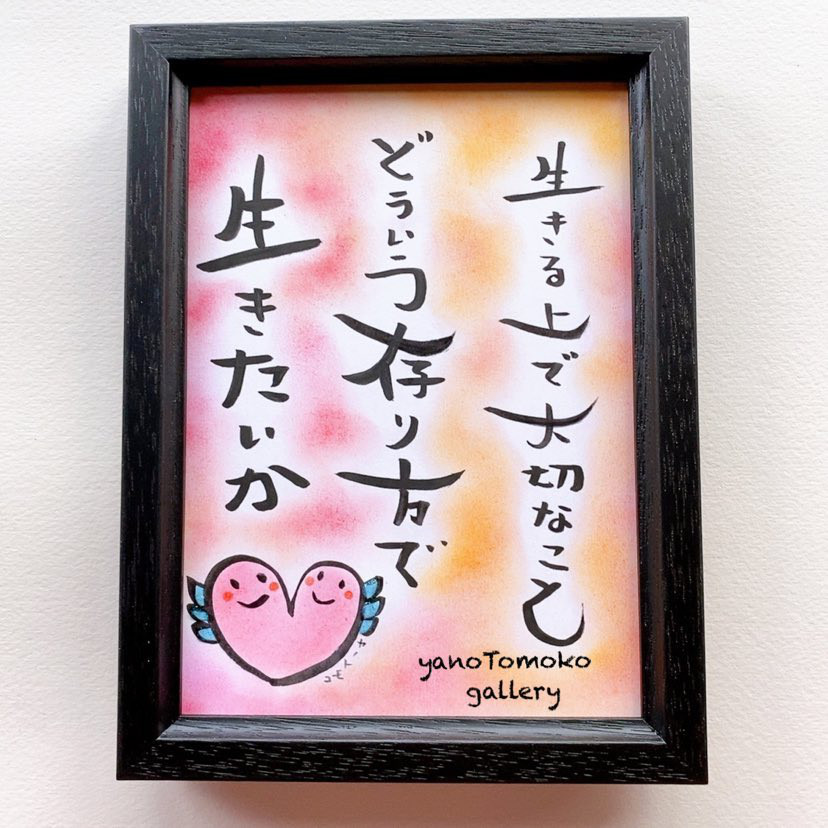 生きる上で大切なこと
どういう存り方で
生きたいか
yanoTomoko
gallery